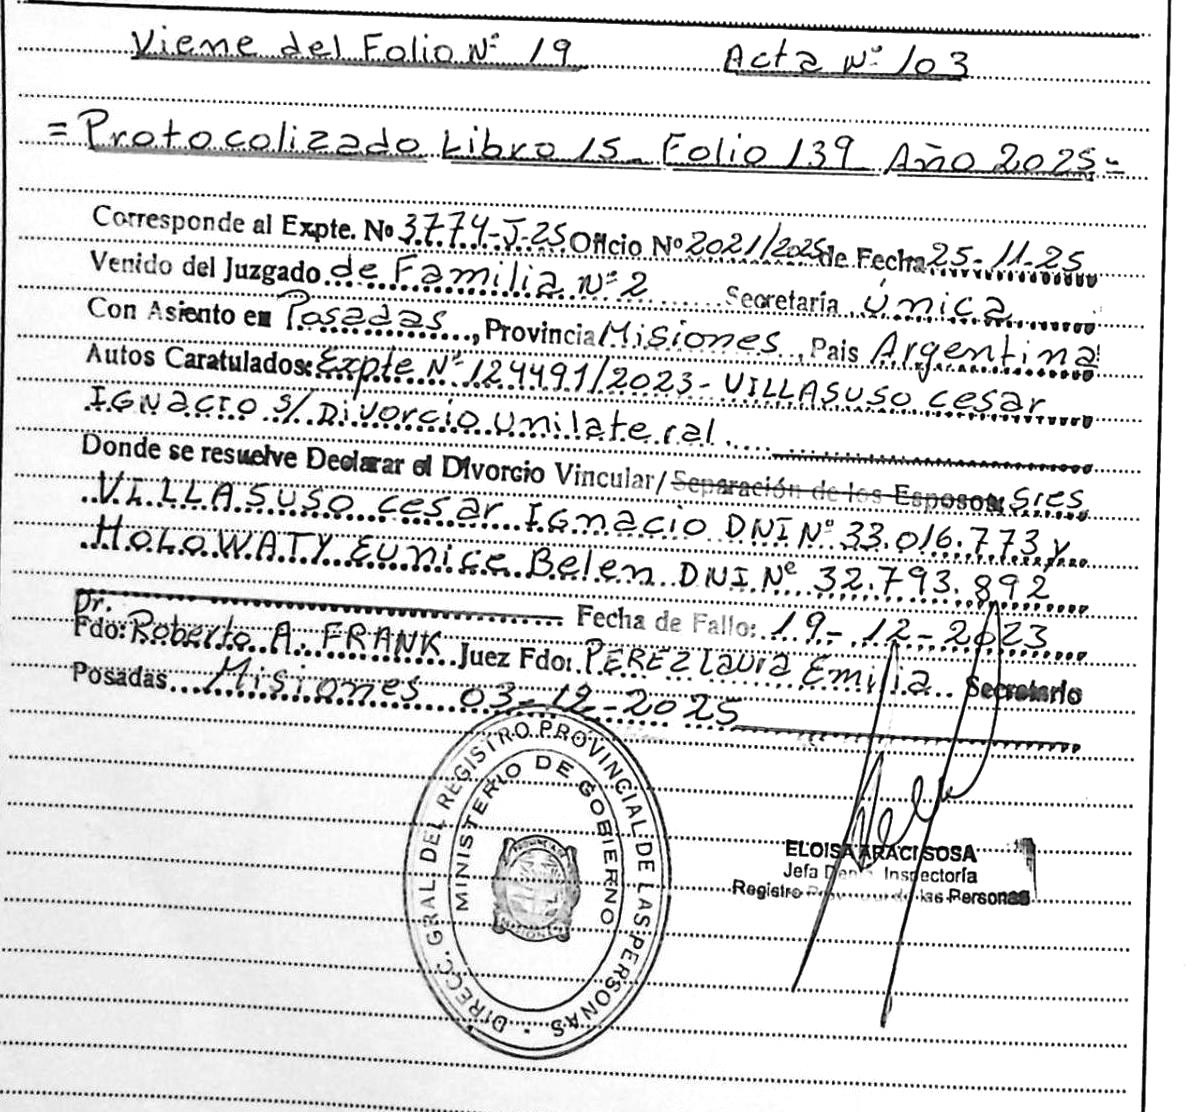 Viene del Folio Nº 19 Acta Nº 103
=Protocolizado Libro 15_ Folio 139 Año 2025-
Corresponde al Expte. Nº 3774-J-25 Oficio Nº 2021/2025 de Fecha 25-11-25
Venido del Juzgado de Familia Nº 2 Secretaría Única
Con Asiento en Posadas, Provincia Misiones, Pais Argentina
Autos Caratulados: Expte Nº 124491/2023- VILLASUSO Cesar
IGNacio s/ Divorcio unilateral
Donde se resuelve Declarar el Divorcio Vincular/Separación de los Esposos: Sres
VILLASUSO Cesar IGnacio DNI Nº 33.016.773 y
HOLOWATY Eunice Belen DNI Nº 32.793.892
Fecha de Fallo: 19-12-2023
Dr.
Fdo: Roberto A. FRANK Juez Fdo: PEREZ Laura Emilia Secretario
Posadas Misiones 03-12-2025
DIRECC. GRAL. DEL REGISTRO PROVINCIAL DE LAS PERSONAS
MINISTERIO DE GOBIERNO
ELOISA ARACI SOSA
Jefa Inspectoría
Registro de las Personas